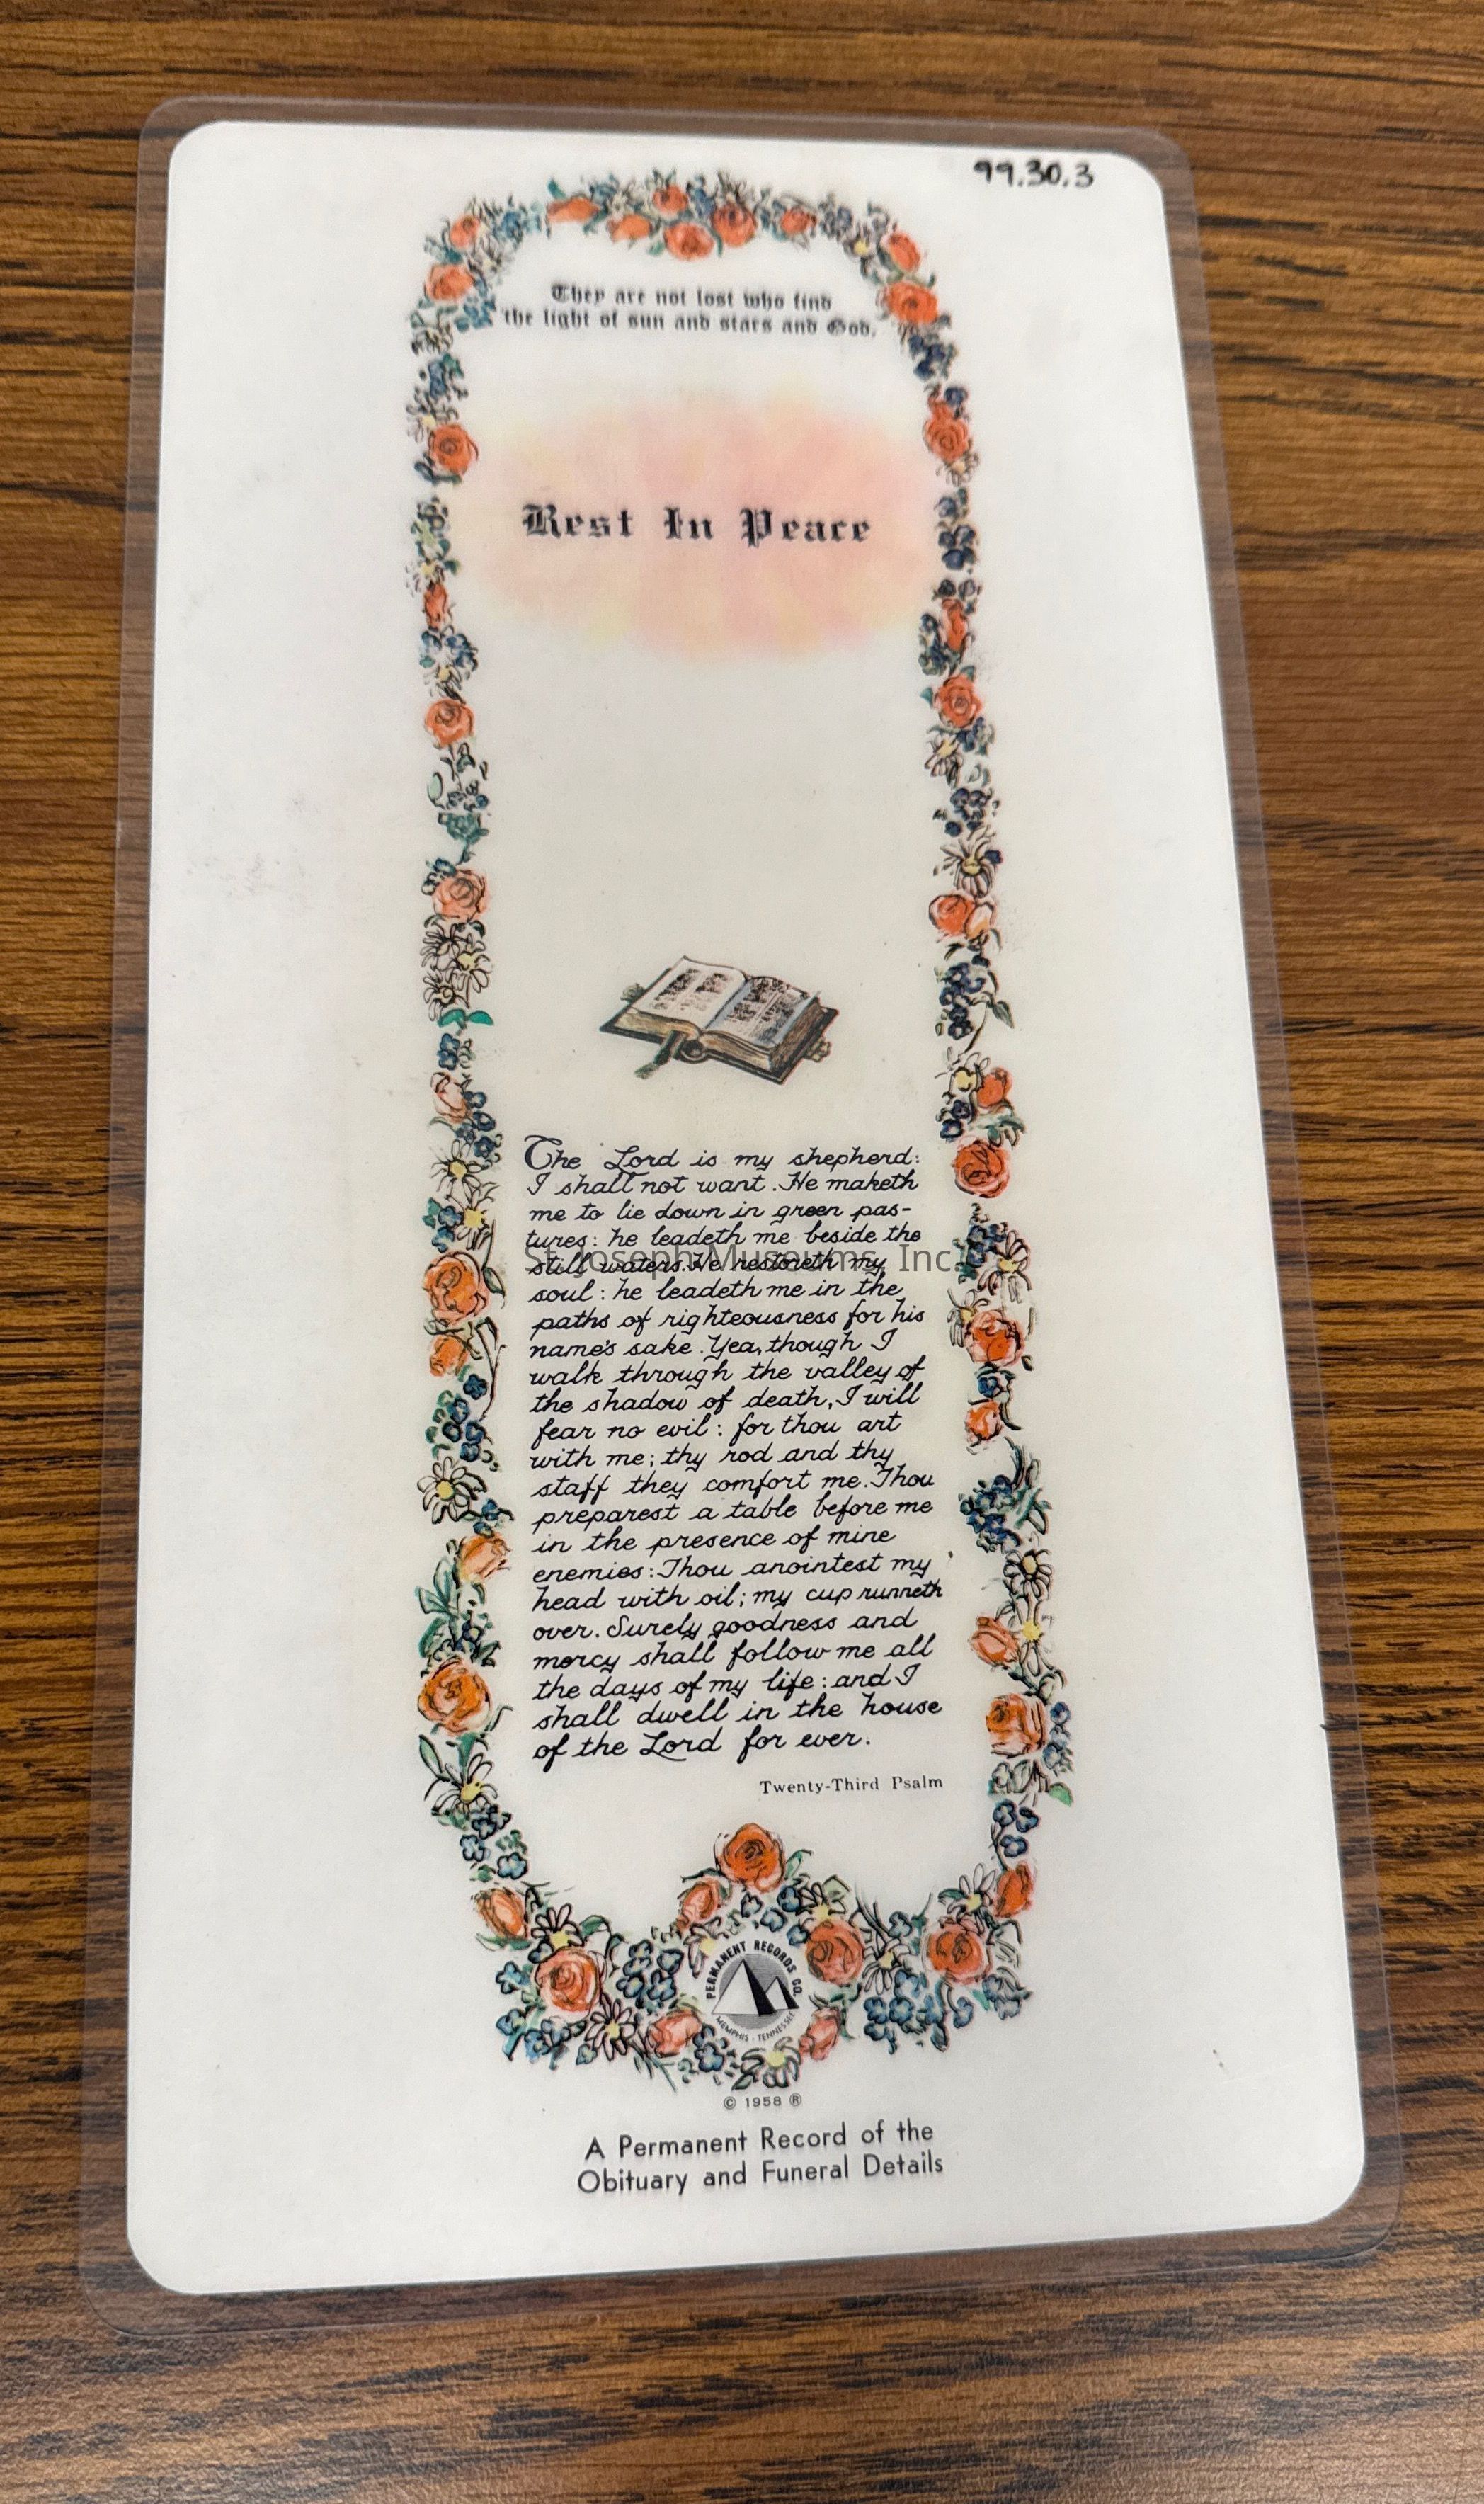 99.30.3
They are not lost who find
the light of sun and stars and God.
Rest In Peace
The Lord is my shepherd:
I shall not want. He maketh
me to lie down in green pas-
tures: he leadeth me beside the
still waters. He restoreth my
St. Joseph Museums, Inc.
soul: he leadeth me in the
paths of righteousness for his
name's sake. Yea, though I
walk through the valley of
the shadow of death, I will
fear no evil: for thou art
with me; thy rod and thy
staff they comfort me. Thou
preparest a table before me
in the presence of mine
enemies: Thou anointest my
head with oil; my cup runneth
over. Surely goodness and
mercy shall follow me all
the days of my life: and I
shall dwell in the house
of the Lord for ever.
Twenty-Third Psalm
PERMANENT RECORDS CO.
MEMPHIS - TENNESSEE
© 1958 ®
A Permanent Record of the
Obituary and Funeral Details